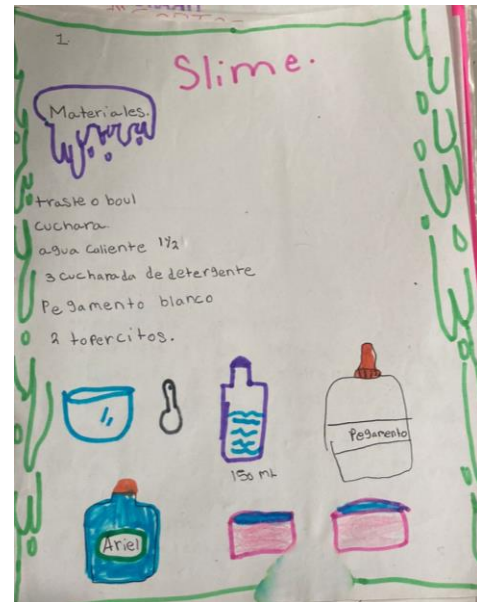 1.
Slime.
Materiales.
traste o boul
cuchara
agua caliente 1½
3 cucharada de detergente
Pegamento blanco
2 topercitos.
Pegamento
150 mL
Ariel